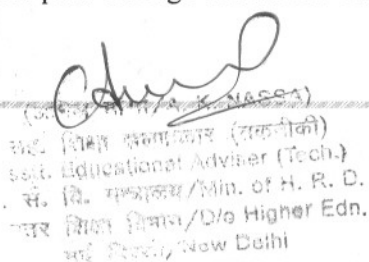 A. K. NASSA)
शिक्षा सलाहकार (तकनीकी)
Educational Adviser (Tech.)
सं. वि. मन्त्रालय/Min. of H. R. D.
शिक्षा विभाग/D/o Higher Edn.
नई दिल्ली/New Delhi